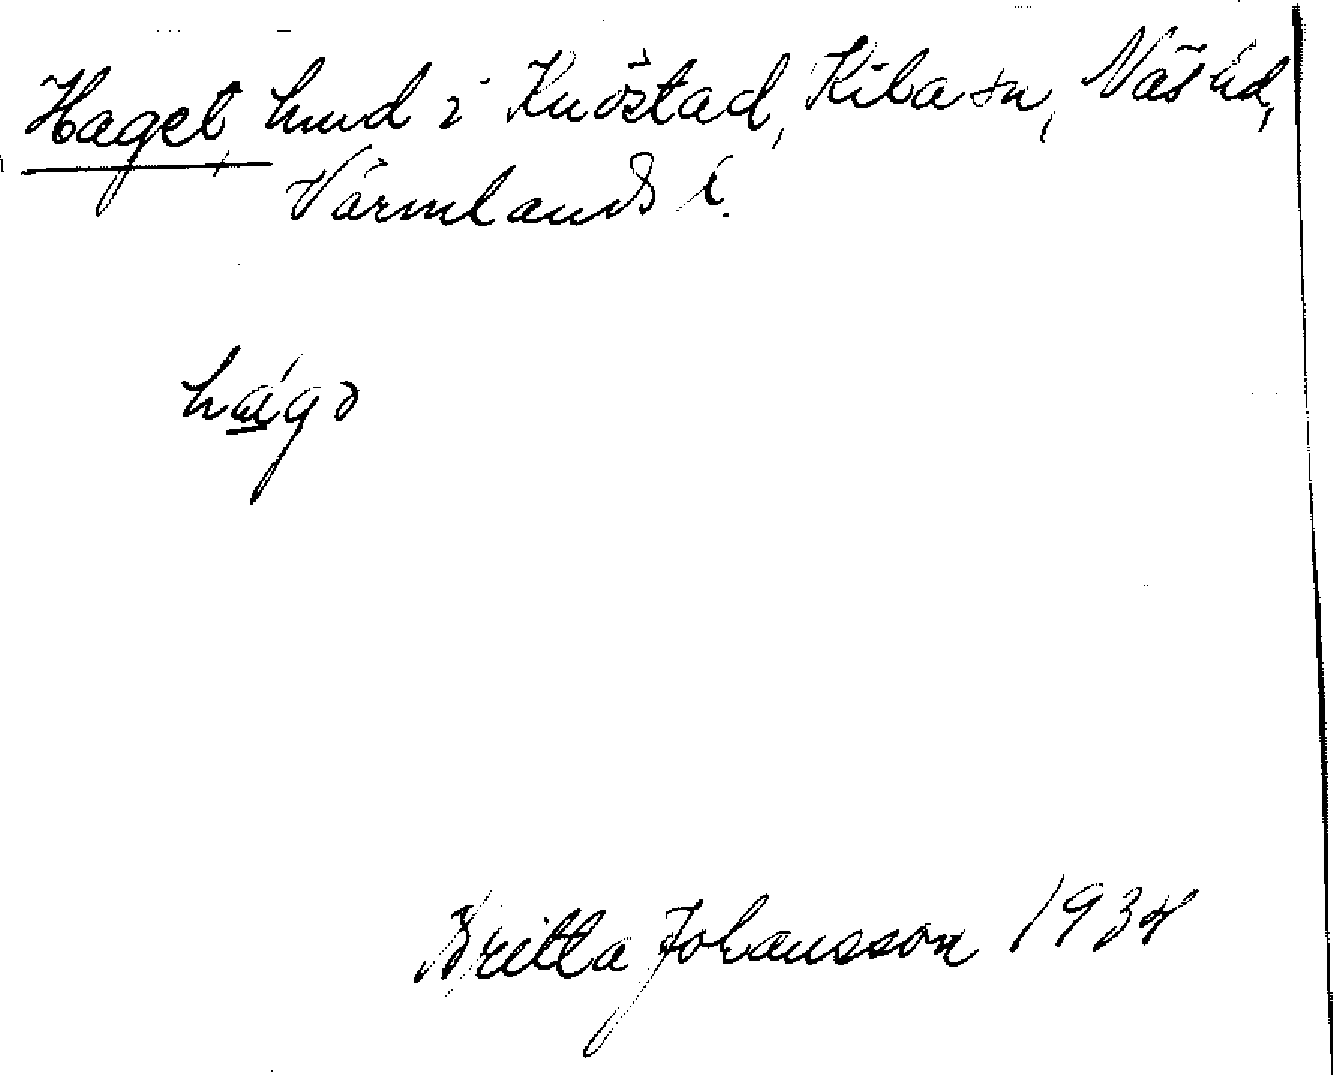 Haget, hmd i Knöstad, Kila sn, Näs hd,
Värmlands l.
hágə
Britta Johansson 1934